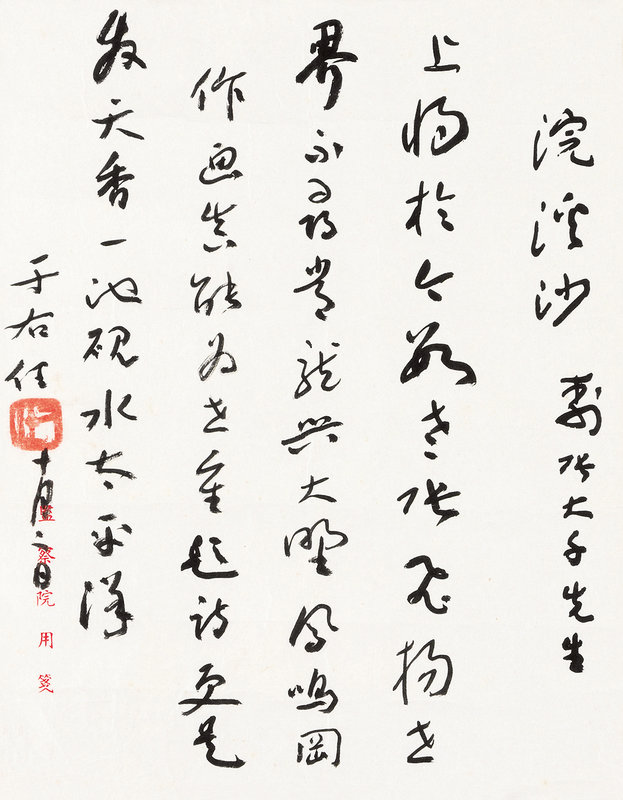 浣溪沙 壽張大千先生
上將於今數老張飛揚世
界不尋常龍興大野鳳鳴岡
作畫真能為世重題詩更是
發天香一池硯水太平洋
于右任 十月二日
監察院用箋